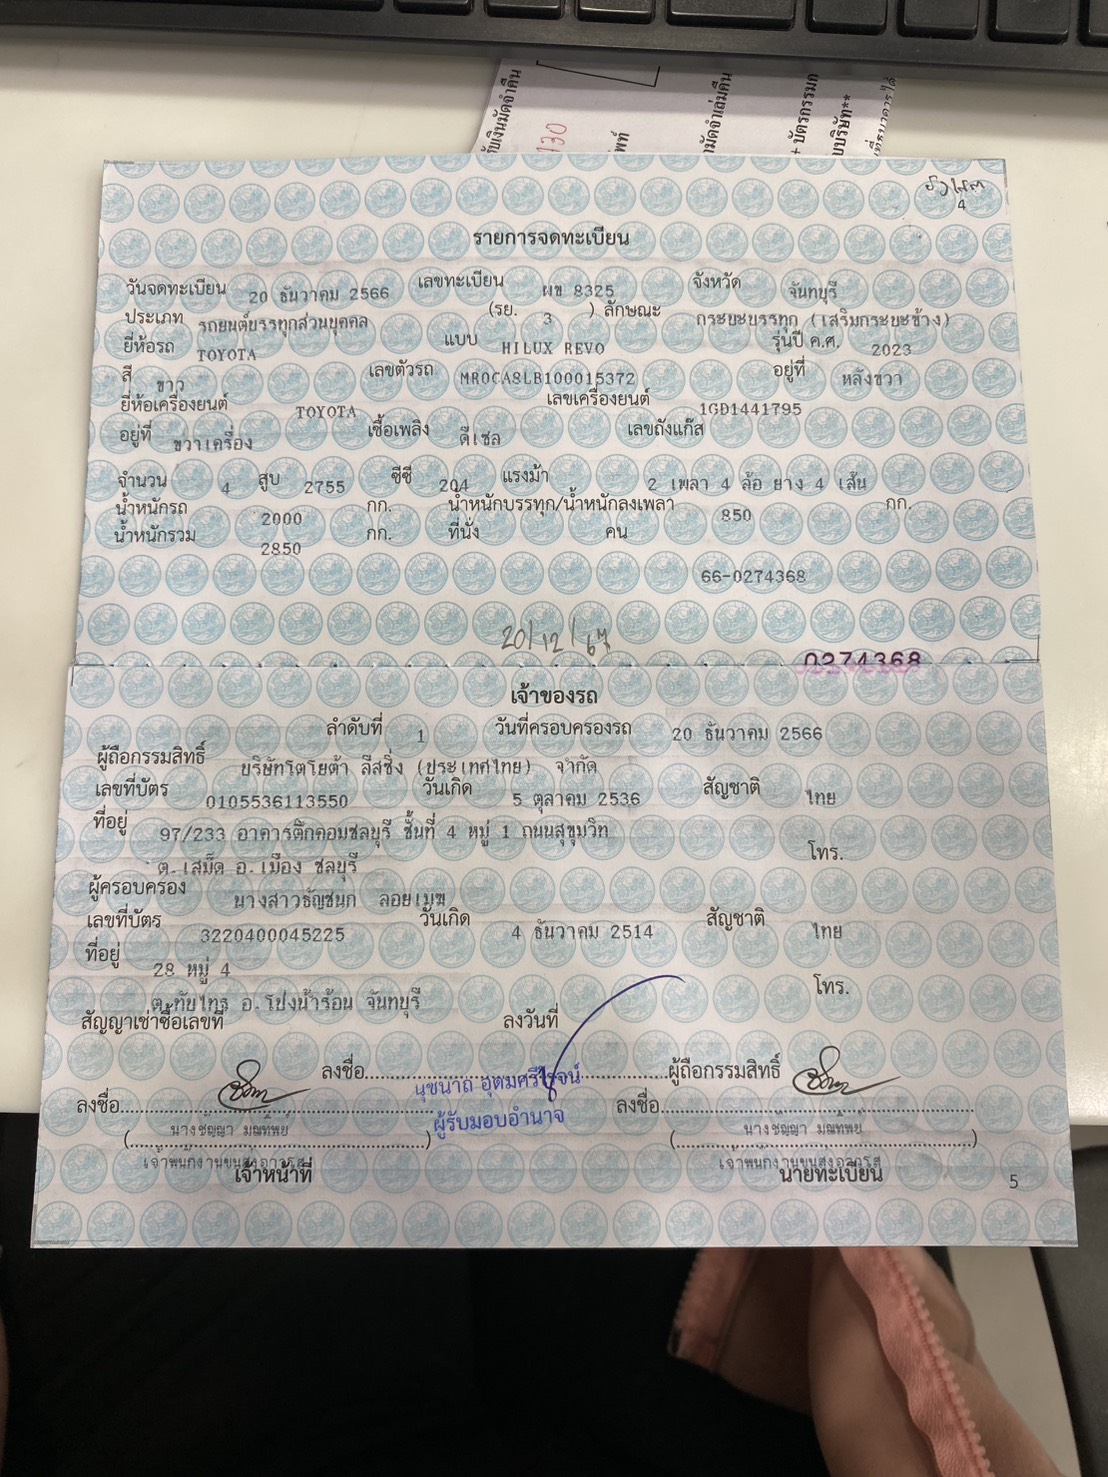 รับเงินมัดจำคืน
130
+ บัตรกรรมก
บบริษัท**
4
รายการจดทะเบียน
วันจดทะเบียน 20 ธันวาคม 2566 เลขทะเบียน ผข 8325 จังหวัด จันทบุรี
ประเภท รถยนต์บรรทุกส่วนบุคคล (รย. 3 ) ลักษณะ กระบะบรรทุก (เสริมกระบะข้าง)
ยี่ห้อรถ TOYOTA แบบ HILUX REVO รุ่นปี ค.ศ. 2023
สี ขาว เลขตัวรถ MR0CA8LB100015372 อยู่ที่ หลังขวา
ยี่ห้อเครื่องยนต์ TOYOTA เลขเครื่องยนต์ 1GD1441795
อยู่ที่ ขวาเครื่อง เชื้อเพลิง ดีเซล เลขถังแก๊ส
จำนวน 4 สูบ 2755 ซีซี 204 แรงม้า 2 เพลา 4 ล้อ ยาง 4 เส้น
น้ำหนักรถ 2000 กก. น้ำหนักบรรทุก/น้ำหนักลงเพลา 850 กก.
น้ำหนักรวม 2850 กก. ที่นั่ง คน
66-0274368
20/12/67
0274368
เจ้าของรถ
ลำดับที่ 1 วันที่ครอบครองรถ 20 ธันวาคม 2566
ผู้ถือกรรมสิทธิ์ บริษัทโตโยต้า ลีสซิ่ง (ประเทศไทย) จำกัด
เลขที่บัตร 0105536113550 วันเกิด 5 ตุลาคม 2536 สัญชาติ ไทย
ที่อยู่ 97/233 อาคารตึกคอมชลบุรี ชั้นที่ 4 หมู่ 1 ถนนสุขุมวิท
ต.เสม็ด อ.เมือง ชลบุรี โทร.
ผู้ครอบครอง นางสาวธัญชนก ลอยเมฆ
เลขที่บัตร 3220400045225 วันเกิด 4 ธันวาคม 2514 สัญชาติ ไทย
ที่อยู่ 28 หมู่ 4
ต.ทับไทร อ.โป่งน้ำร้อน จันทบุรี โทร.
สัญญาเช่าซื้อเลขที่ ลงวันที่
ลงชื่อ ผู้ถือกรรมสิทธิ์
นุชนาถ อุดมศรีไรจน์
ลงชื่อ ผู้รับมอบอำนาจ ลงชื่อ
(นางชัญญา มณฑิพย์) (นางชัญญา มณฑิพย์)
เจ้าพนักงานขนส่งอาวุโส เจ้าพนักงานขนส่งอาวุโส
เจ้าหน้าที่ นายทะเบียน
5